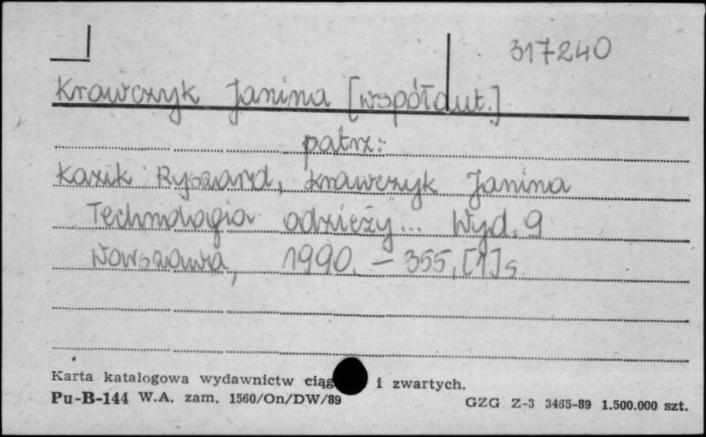 317240
Krawczyk Janina [współaut.]
patrz:
Kazik Ryszard, Krawczyk Janina
Technologia odzieży... Wyd. 9
Warszawa, 1990. – 355, [1] s
Karta katalogowa wydawnictw ciąg i zwartych.
Pu-B-144 W.A. zam. 1560/On/DW/89 GZG Z-3 3465-89 1.500.000 szt.